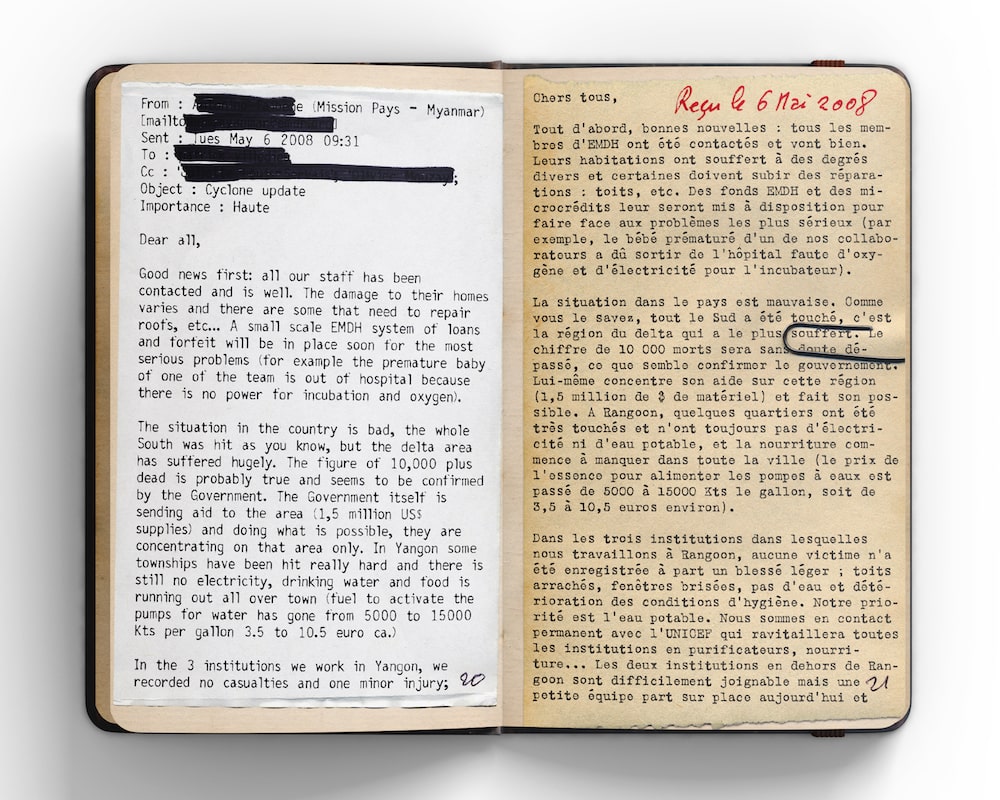 From : A e (Mission Pays - Myanmar)
[mailto
Sent : Tues May 6 2008 09:31
To :
Cc : ;
Object : Cyclone update
Importance : Haute
Dear all,
Good news first: all our staff has been
contacted and is well. The damage to their homes
varies and there are some that need to repair
roofs, etc... A small scale EMDH system of loans
and forfeit will be in place soon for the most
serious problems (for example the premature baby
of one of the team is out of hospital because
there is no power for incubation and oxygen).
The situation in the country is bad, the whole
South was hit as you know, but the delta area
has suffered hugely. The figure of 10,000 plus
dead is probably true and seems to be confirmed
by the Government. The Government itself is
sending aid to the area (1,5 million US$
supplies) and doing what is possible, they are
concentrating on that area only. In Yangon some
townships have been hit really hard and there is
still no electricity, drinking water and food is
running out all over town (fuel to activate the
pumps for water has gone from 5000 to 15000
Kts per gallon 3.5 to 10.5 euro ca.)
In the 3 institutions we work in Yangon, we
recorded no casualties and one minor injury;
20
Chers tous,
Reçu le 6 Mai 2008
Tout d'abord, bonnes nouvelles : tous les mem-
bres d'EMDH ont été contactés et vont bien.
Leurs habitations ont souffert à des degrés
divers et certaines doivent subir des répara-
tions : toits, etc. Des fonds EMDH et des mi-
crocrédits leur seront mis à disposition pour
faire face aux problèmes les plus sérieux (par
exemple, le bébé prématuré d'un de nos collabo-
rateurs a dû sortir de l'hôpital faute d'oxy-
gène et d'électricité pour l'incubateur).
La situation dans le pays est mauvaise. Comme
vous le savez, tout le Sud a été touché, c'est
la région du delta qui a le plus souffert. Le
chiffre de 10 000 morts sera sans doute dé-
passé, ce que semble confirmer le gouvernement.
Lui-même concentre son aide sur cette région
(1,5 million de $ de matériel) et fait son pos-
sible. A Rangoon, quelques quartiers ont été
très touchés et n'ont toujours pas d'électri-
cité ni d'eau potable, et la nourriture com-
mence à manquer dans toute la ville (le prix de
l'essence pour alimenter les pompes à eaux est
passé de 5000 à 15000 Kts le gallon, soit de
3,5 à 10,5 euros environ).
Dans les trois institutions dans lesquelles
nous travaillons à Rangoon, aucune victime n'a
été enregistrée à part un blessé léger ; toits
arrachés, fenêtres brisées, pas d'eau et dété-
rioration des conditions d'hygiène. Notre prio-
rité est l'eau potable. Nous sommes en contact
permanent avec l'UNICEF qui ravitaillera toutes
les institutions en purificateurs, nourri-
ture... Les deux institutions en dehors de Ran-
goon sont difficilement joignable mais une
petite équipe part sur place aujourd'hui et
21